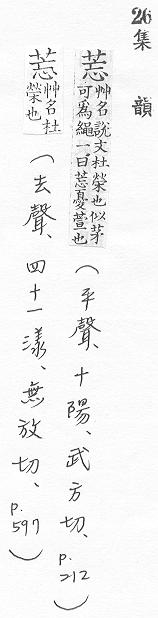 26集 韻
莣艸名說文杜榮也似茅
可為繩一曰莣憂萱也
(平聲、十陽、武方切、p.212)
莣艸名杜
榮也
(去聲、四十一漾、無放切、p.597)